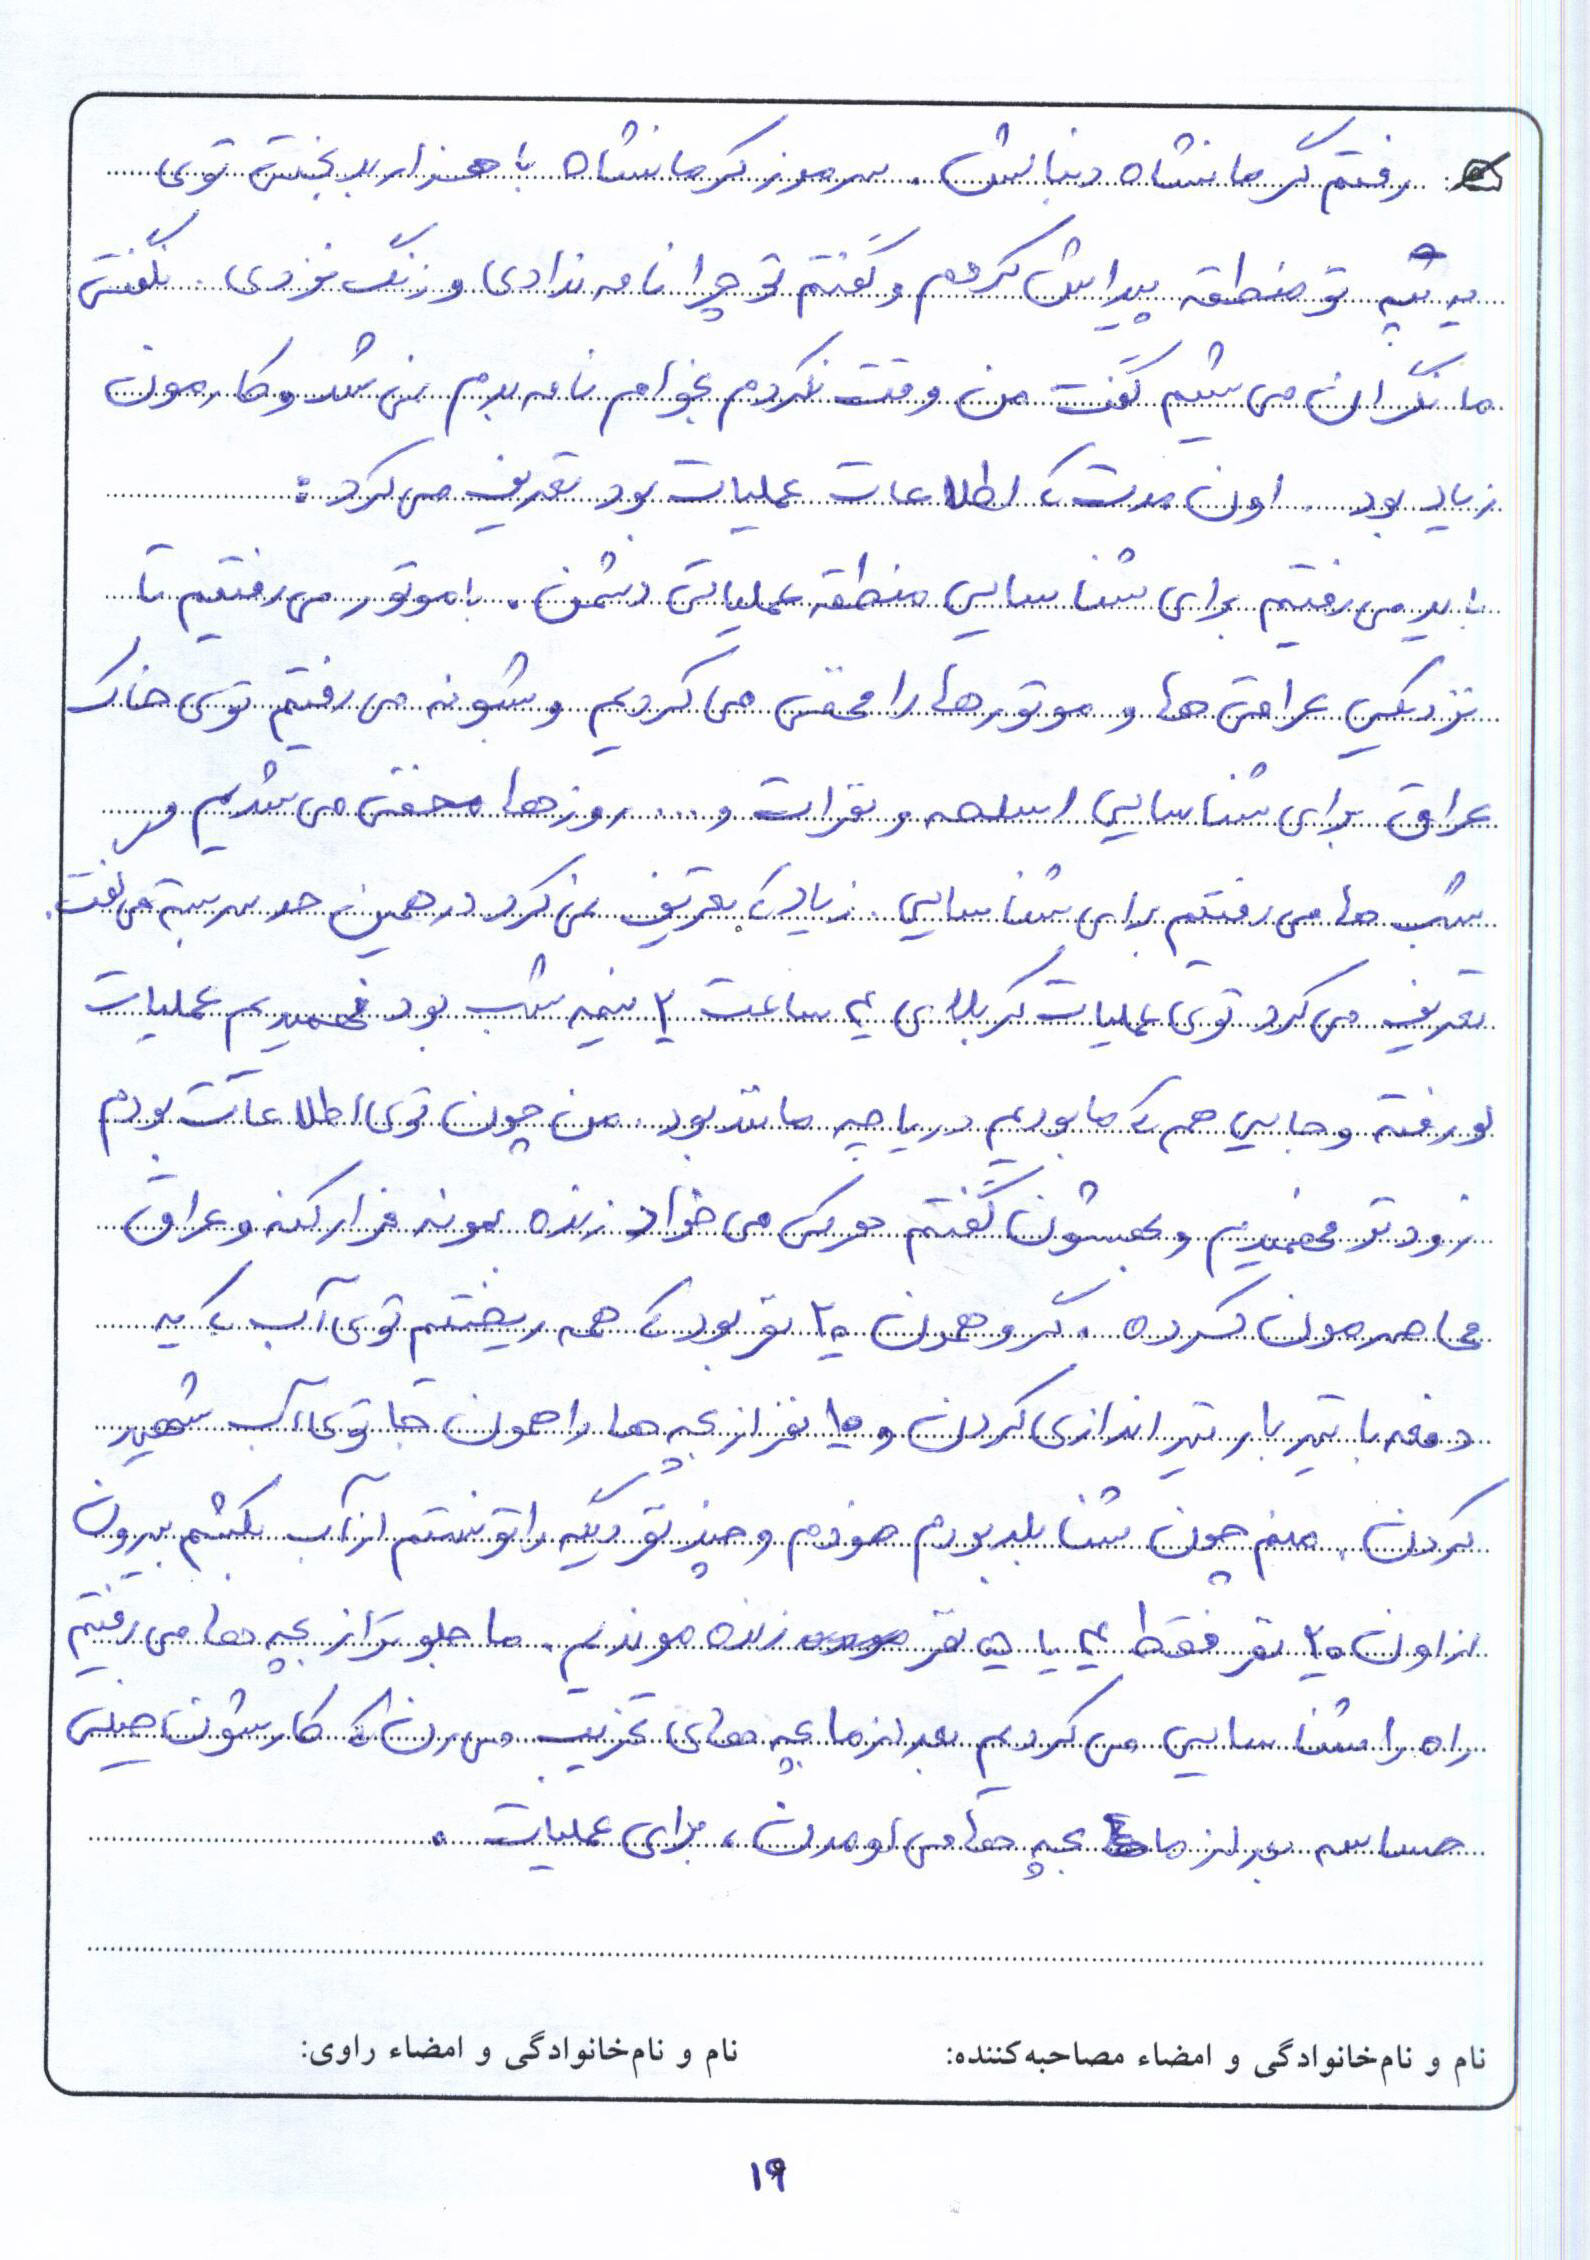 رفتم کرمانشاه دنبالش. سرموز کرمانشاه با هزار بدبختی توی
یه تپه تو منطقه پیداش کردم و گفتم تو چرا نامه ندادی و زنگ نزدی. نگفتی
ما نگران می شیم گفت من وقت نکردم بخوام نامه بدم نمی شد و کارمون
زیاد بود. اون مدت که اطلاعات عملیات بود تعریف می کرد:
باید می رفتیم برای شناسایی منطقه عملیاتی دشمن. با موتور می رفتیم تا
نزدیکی عراقی ها و موتورها را مخفی می کردیم و شبونه می رفتیم توی خاک
عراق برای شناسایی اسلحه و نفرات و ... روزها مخفی می شدیم و
شب ها می رفتیم برای شناسایی. زیاد که تعریف نمی کرد در همین حد سربسته می گفت.
تعریف می کرد توی عملیات کربلای ۴ ساعت ۲ نیمه شب بود فهمیدیم عملیات
لو رفته و جایی هم که ما بودیم دریاچه مانند بود. من چون توی اطلاعات بودم
زودتر فهمیدم و بهشون گفتم هرکس می خواد زنده بمونه فرار کنه و عراق
محاصرمون کرده. گروهمون ۲۰ نفر بود که همه ریختیم توی آب که یه
دفعه با تیربار تیراندازی کردن و ۱۵ نفر از بچه ها را همون جا توی آب شهید
کردن. منم چون شنا بلد بودم خودم و چند نفر دیگه را تونستم از آب بکشم بیرون
از اون ۲۰ نفر فقط ۴ یا ۵ نفر زنده موندیم. ما جلوتر از بچه ها می رفتیم
راه را شناسایی می کردیم بعد از ما بچه های تخریب می رن که کارشون خیلی
حساسه بعد از ما بچه ها می اومدن، برای عملیات.
نام و نام‌خانوادگی و امضاء مصاحبه‌کننده: نام و نام‌خانوادگی و امضاء راوی:
۱۹